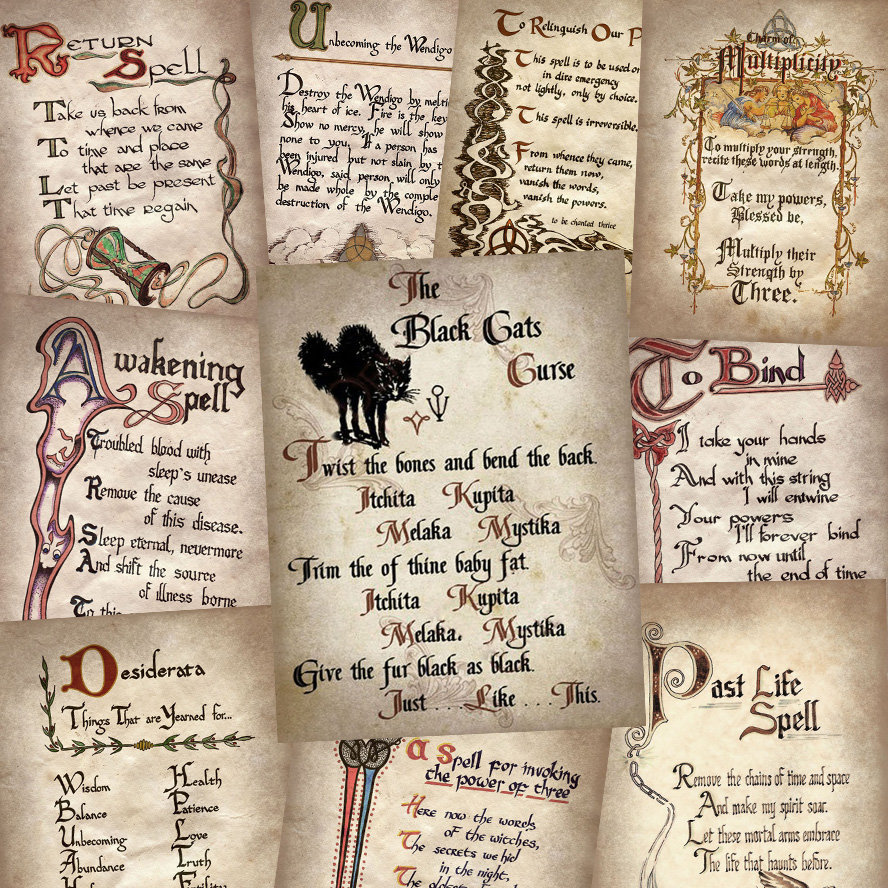 Return
Spell
Take us back from
whence we came
To time and place
that are the same
Let past be present
That time regain
Unbecoming the Wendigo
Destroy the Wendigo by melti
his heart of ice. Fire is the key
Show no mercy, he will show
none to you. If a person has
been injured but not slain by t
Wendigo, said person will only
be made whole by the comple
destruction of the Wendigo.
To Relinquish Our P
This spell is to be used on
in dire emergency
not lightly, only by choice.
This spell is irreversible.
From whence they came,
return them now,
vanish the words,
vanish the powers.
to be chanted thrice
Charm of
Multiplicity
To multiply your strength,
recite these words at length.
Take my powers,
Blessed be,
Multiply their
Strength by
Three.
Awakening
Spell
Troubled blood with
sleep's unease
Remove the cause
of this disease.
Sleep eternal, nevermore
And shift the source
of illness borne
To this
The
Black Cats
Curse
Twist the bones and bend the back.
Itchita Kupita
Melaka Mystika
Trim the of thine baby fat.
Itchita Kupita
Melaka. Mystika
Give the fur black as black.
Just . . . Like . . . This.
To Bind
I take your hands
in mine
And with this string
I will entwine
Your powers
I'll forever bind
From now until
the end of time
Desiderata
Things That are Yearned for...
Wisdom
Balance
Unbecoming
Abundance
Health
Patience
Love
Truth
Fertility
a Spell for invoking
the power of three
Here now the words
of the witches,
The secrets we hid
in the night,
The oldest
Past Life
Spell
Remove the chains of time and space
And make my spirit soar.
Let these mortal arms embrace
The life that haunts before.